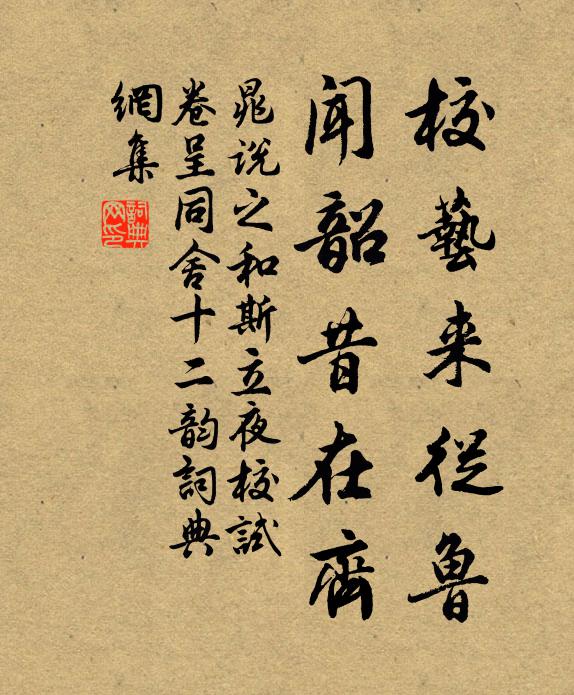 校藝来從魯
聞韶昔在齊
晁说之和斯立夜校試
卷呈同舍十二韵詞典
網集
詞典
网印